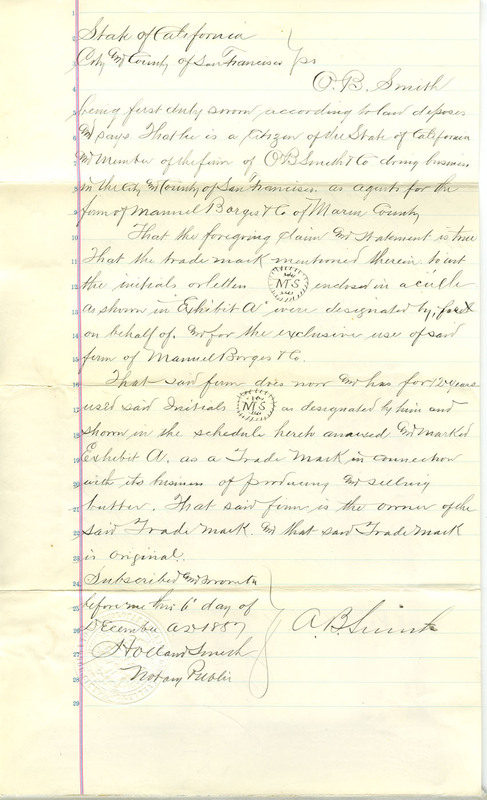 State of California
City and County of San Francisco } ss
O. B. Smith
being first duly sworn according to law deposes
and says That he is a citizen of the State of California
and Member of the firm of O B Smith & Co doing business
in the City and County of San Francisco. as agents for the
firm of Manuel Borges & Co of Marin County
That the foregoing claim and statement is true
That the trade mark mentioned therein to wit
the initials or letters MS enclosed in a circle
as shown in Exhibit A were designated by, for &
on behalf of. and for the exclusive use of said
firm of Manuel Borges & Co.
That said firm does now and has for 12 years
used said Initials MS as designated by him and
shown in the schedule hereto annexed and marked
Exhibit A. as a Trade Mark in connection
with its business of producing and selling
butter. That said firm is the owner of the
said Trade Mark. and that said Trade Mark
is original.
Subscribed and sworn to
before me this 6 day of
December AD 1887
O. B. Smith
Holland Smith
Notary Public
1
2
3
4
5
6
7
8
9
10
11
12
13
14
15
16
17
18
19
20
21
22
23
24
25
26
27
28
29